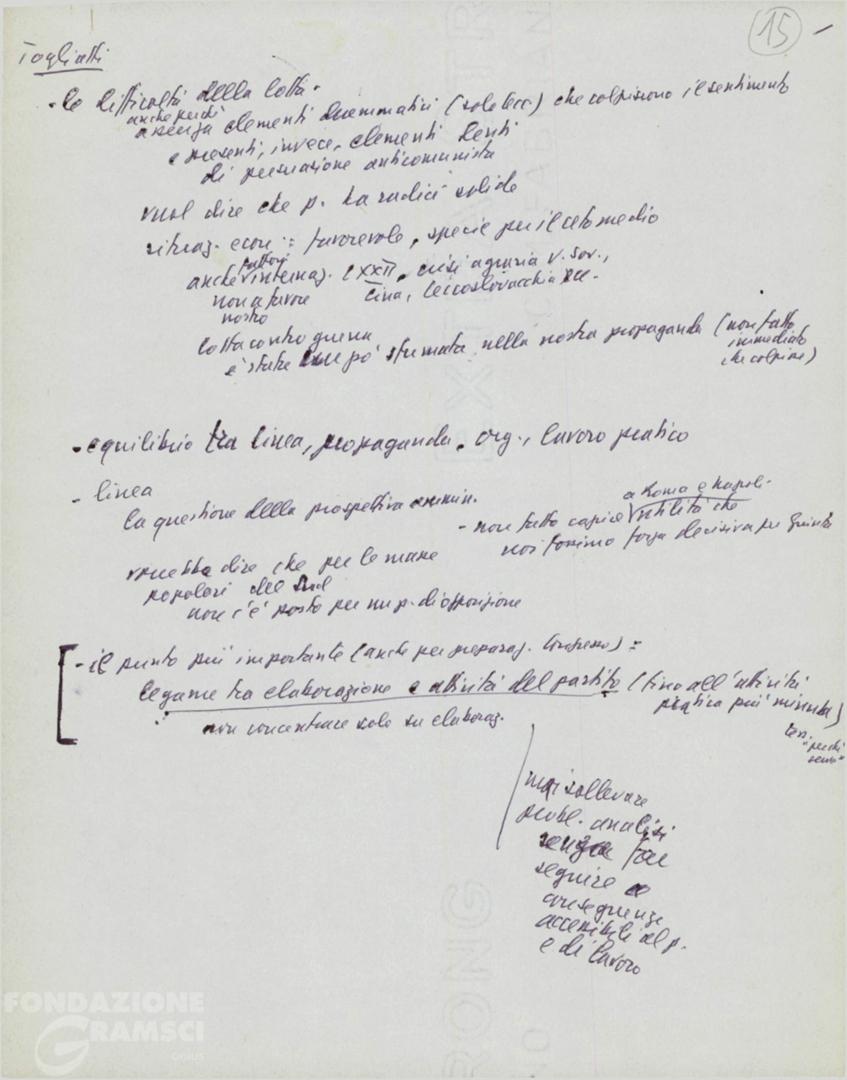 15
Togliatti
- le difficoltà della lotta.
anche perché
assenza elementi drammatici () che colpiscono il sentimento
e presenti, invece, elementi lenti
di persuasione anticomunista
vuol dire che p. ha radici solide
situaz. econ: favorevole, specie per il ceto medio
anche fattori internaz. (XXII, crisi agraria U. Sov.,
non a favore Cina, Cecoslovacchia ecc.
nostro
lotta contro guerra
è stata un po' sfumata nella nostra propaganda (non fatto
immediato
che colpisce)
- equilibrio tra linea, propaganda, org., lavoro pratico
- linea
la questione della prospettiva
a Roma e Napoli.
- non fatto capire utilità che
noi fossimo forza decisiva per giunta
vorrebbe dire che per le masse
popolari del Sud
non c'è posto per un p. di opposizione
- il punto più importante (anche per preparaz. Congresso):
legame tra elaborazione e attività del partito (fino all'attività
pratica più minuta)
non concentrare solo su elaboraz.
mai sollevare
probl. analisi
senza far
seguire
conseguenze
accessibili al p.
e di lavoro
FONDAZIONE
GRAMSCI
ONLUS